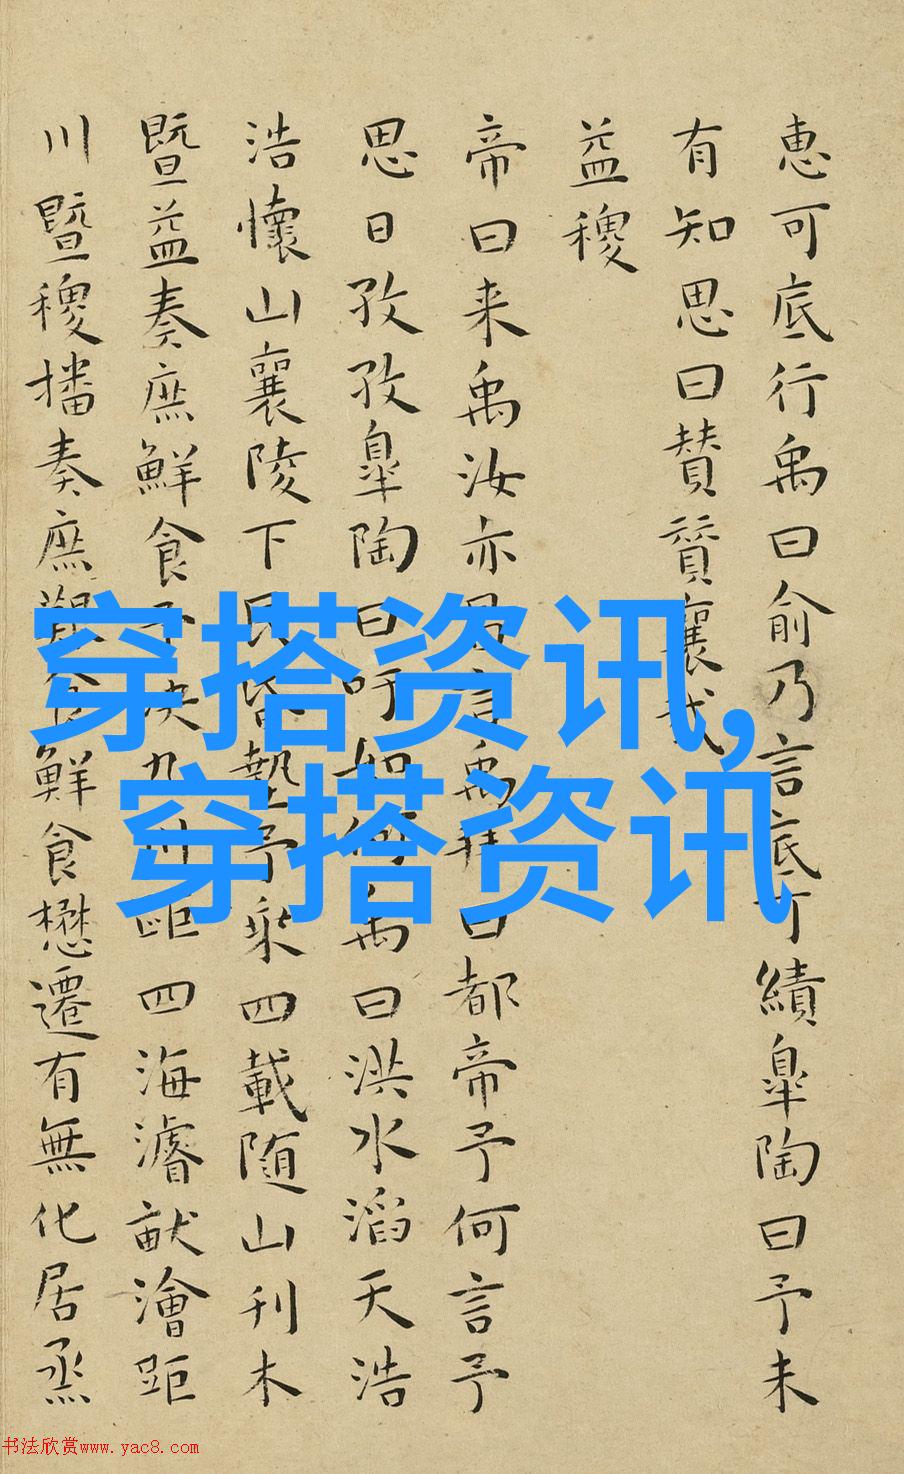 惠可底行禹曰俞乃言底可績皐陶曰予未
有知思曰賛賛襄哉
益稷
帝曰来禹汝亦昌言禹拜曰都帝予何言予
思日孜孜皐陶曰吁如何禹曰洪水滔天浩
浩懷山襄陵下民昏墊予乘四載随山刊木
暨益奏庶鮮食予决九川距四海濬畎澮距
川暨稷播奏庶艱食鮮食懋遷有無化居烝
穿搭资讯,
穿搭资讯
书法欣赏www.yac8.com